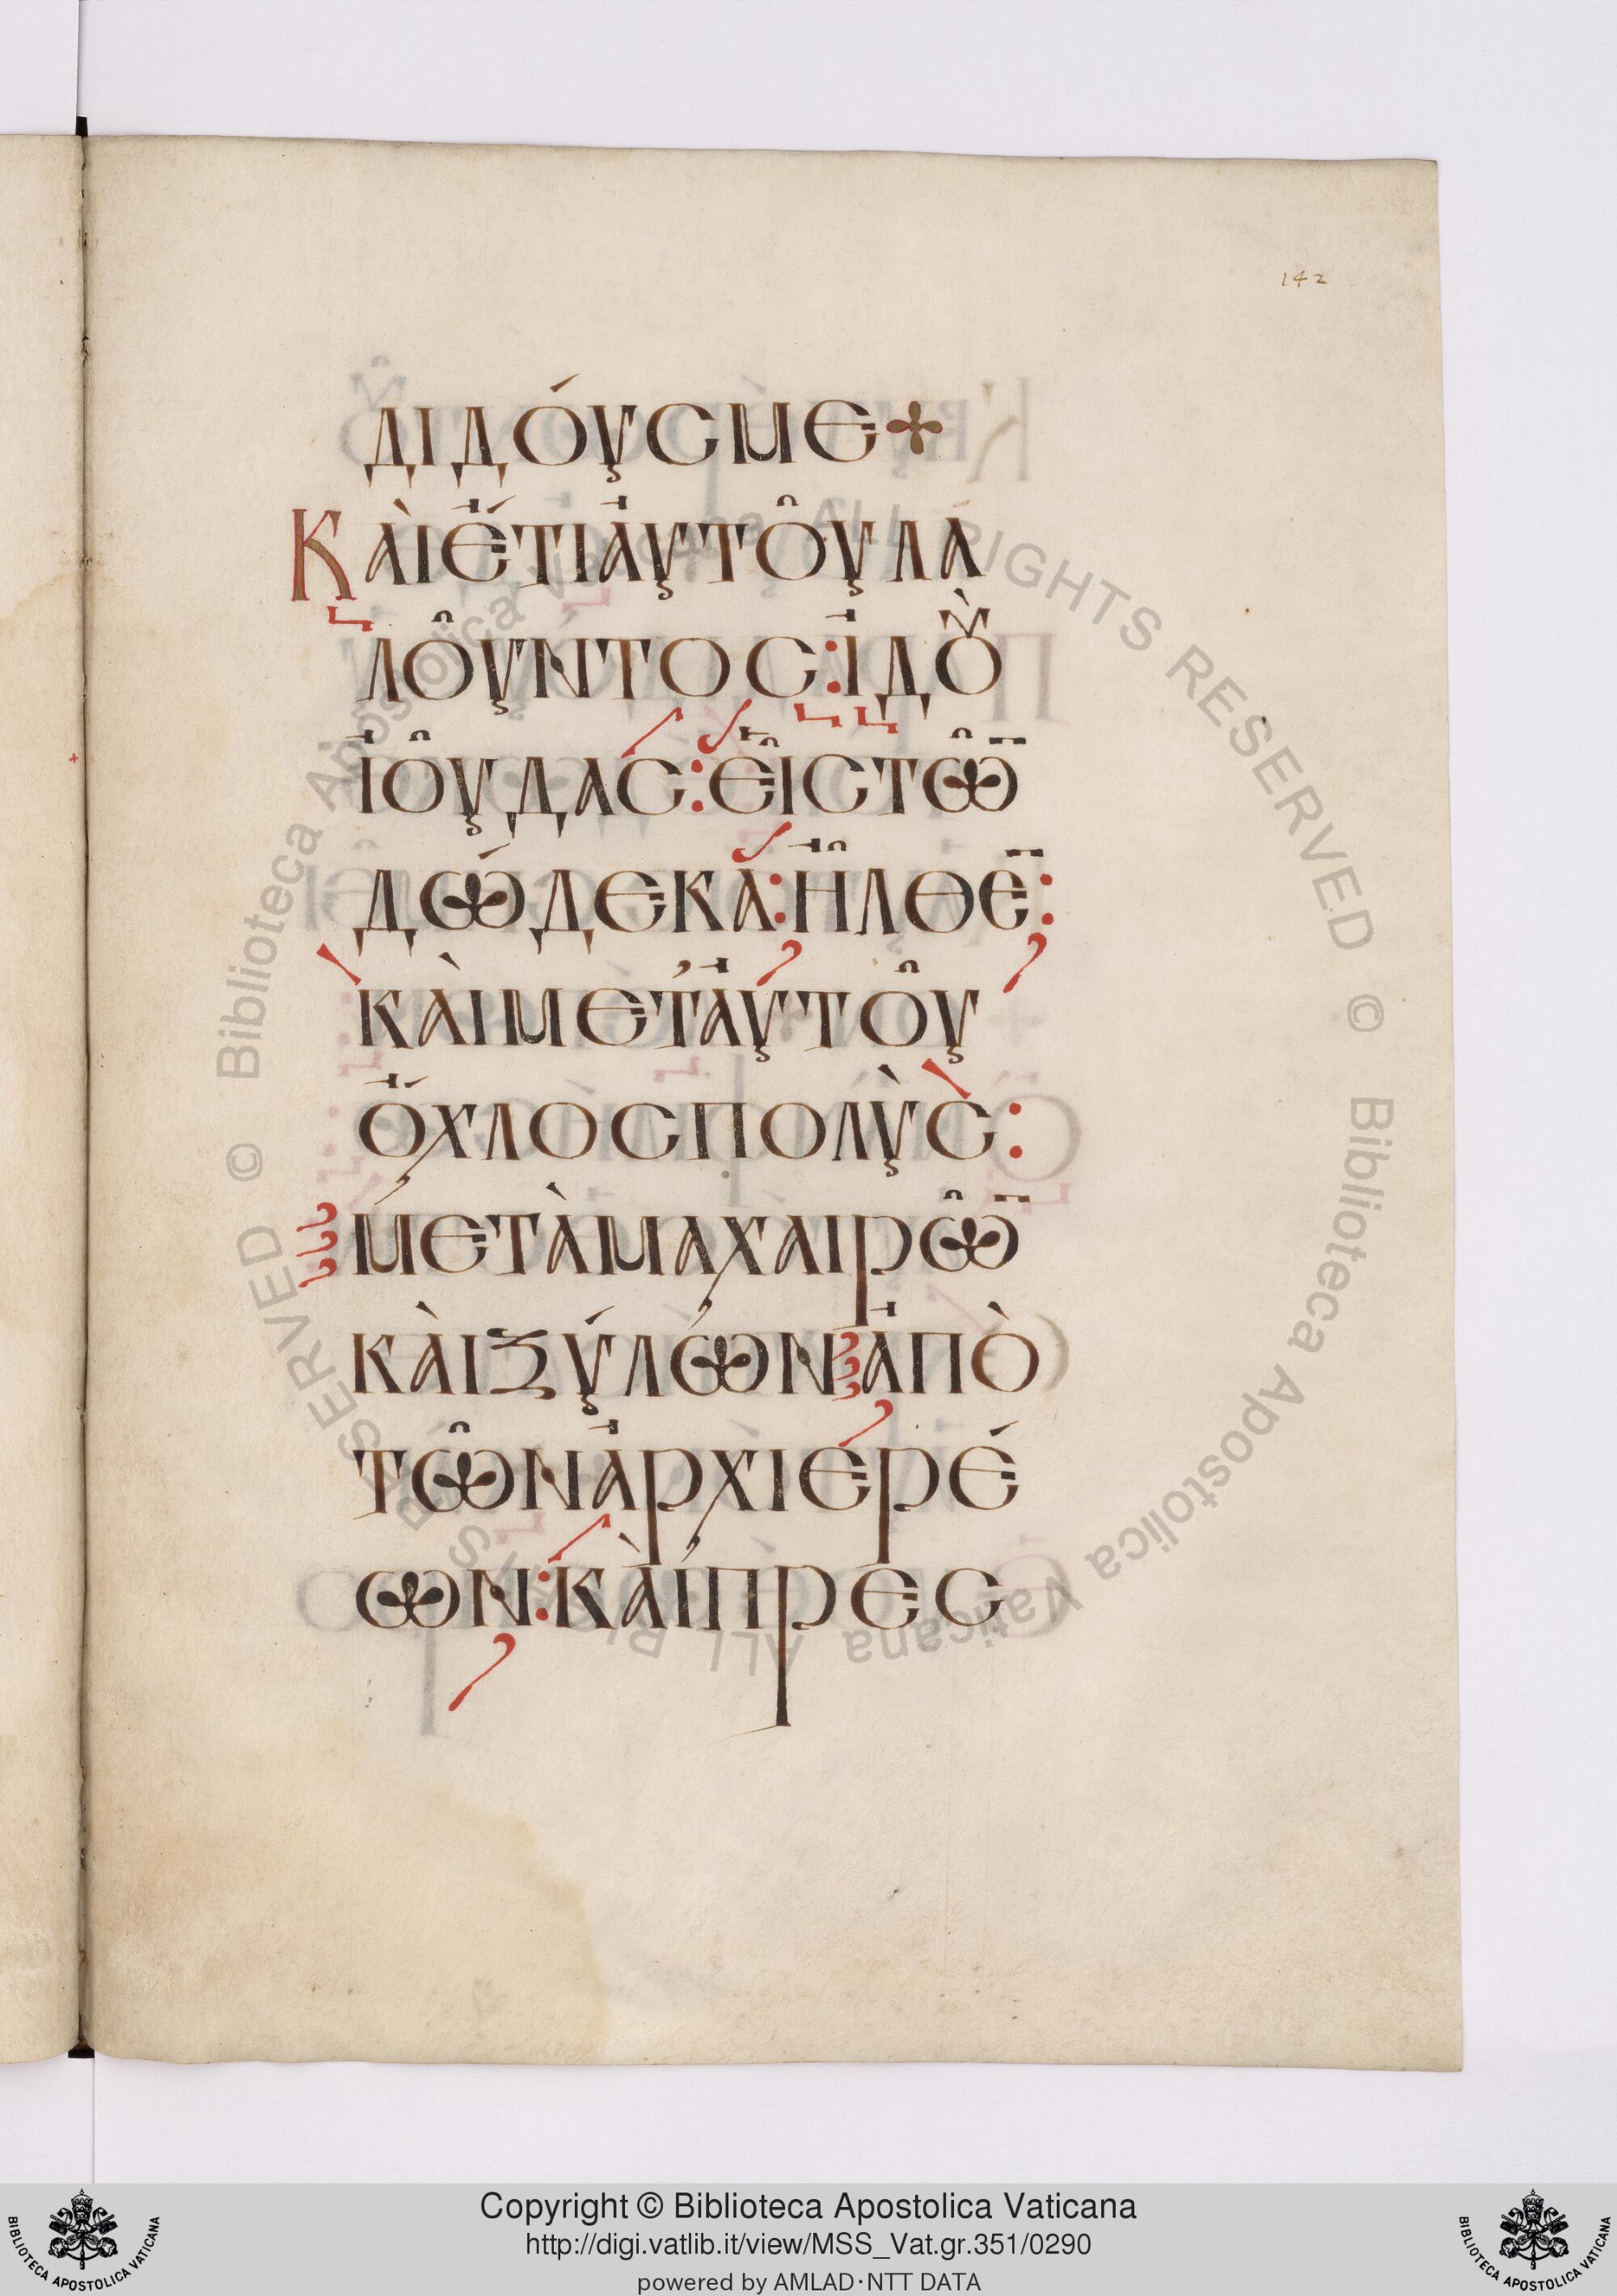 142
ΔΙΔΟΎΣ ΜΕ+
ΚΑῚ ἜΤΙ ἈΥΤΟῦ ΛΑ
ΛΟῦΝΤΟΣ: ἸΔΟῪ
ἸΟῦΔΑΣ: ΕἿΣ ΤΩ͂Ν
ΔΏΔΕΚΑ: ἮΛΘΕΝ:
ΚᾺΙ ΜΕΤ' ἈΥΤΟῦ
ὌΧΛΟΣ ΠΟΛῪΣ:
ΜΕΤᾺ ΜΑΧΑΙΡΩ͂Ν
ΚᾺΙ ΞΎΛΩΝ ἈΠῸ
ΤΩ͂Ν ἈΡΧΙΕΡΈ
ΩΝ: ΚᾺΙ ΠΡΕΣ
© Biblioteca Apostolica Vaticana ALL RIGHTS RESERVED © Biblioteca Apostolica Vaticana ALL RIGHTS RESERVED
Copyright © Biblioteca Apostolica Vaticana
http://digi.vatlib.it/view/MSS_Vat.gr.351/0290
powered by AMLAD·NTT DATA
BIBLIOTECA APOSTOLICA VATICANA
BIBLIOTECA APOSTOLICA VATICANA